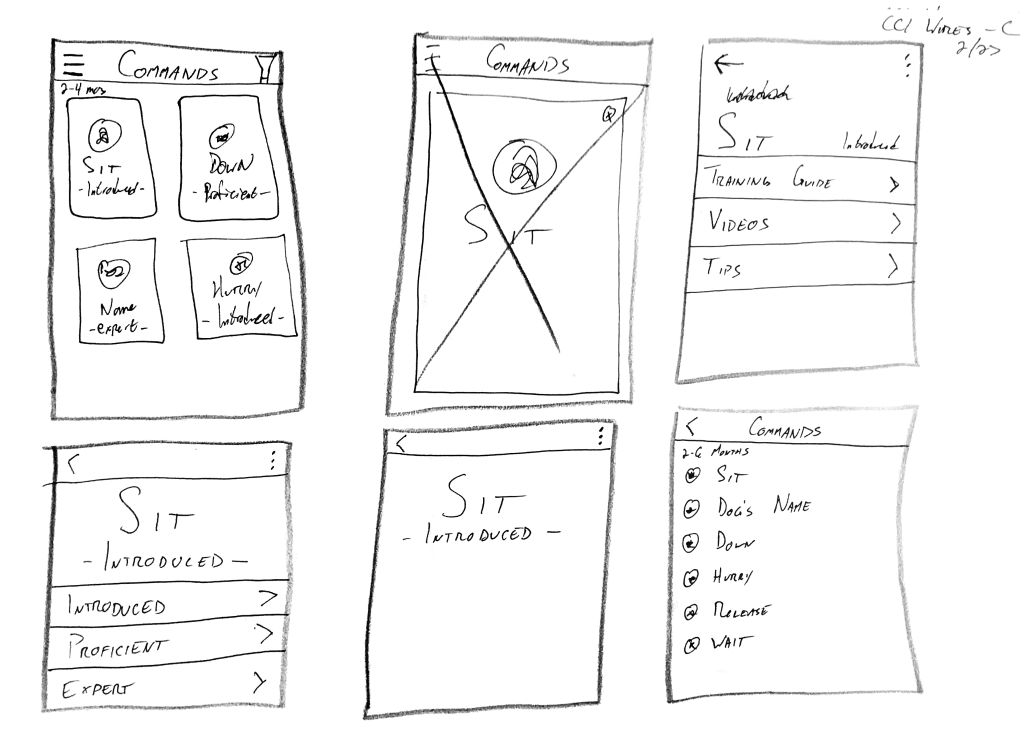 CCI WIRES - C
2/27
COMMANDS
2-4 mos
SIT
- Introduced -
DOWN
- Proficient -
Name
- expert -
HURRY
- Introduced -
COMMANDS
SIT
SIT
Introduced
TRAINING GUIDE
VIDEOS
TIPS
SIT
- INTRODUCED -
INTRODUCED
PROFICIENT
EXPERT
SIT
- INTRODUCED -
COMMANDS
2-6 MONTHS
SIT
DOG'S NAME
DOWN
HURRY
RELEASE
WAIT